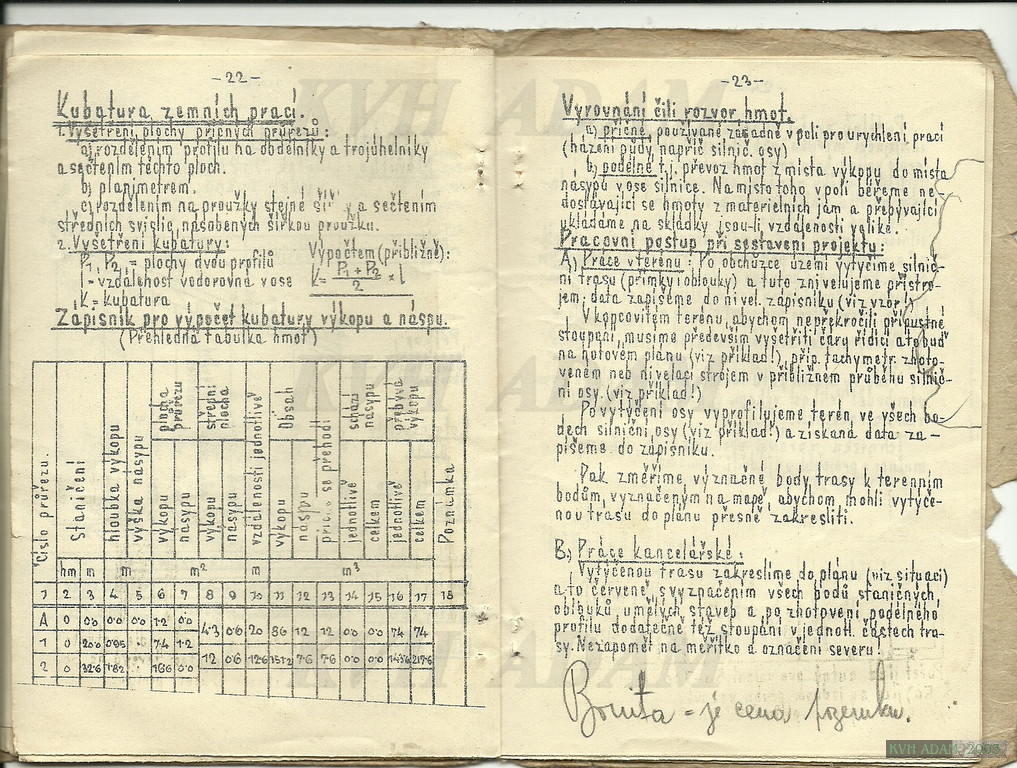 -22-
Kubatura zemních prací.
1. Vyšetření plochy příčných průřezů:
a) rozdělením profilu na obdélníky a trojúhelníky
a sečtením těchto ploch.
b) planimetrem.
c) rozdělením na proužky stejné šíř y a sečtením
středních svislic násobených šířkou proužku.
2. Vyšetření kubatury: Výpočtem (přibližně):
P₁, P₂ = plochy dvou profilů
l = vzdálenost vodorovná v ose k = P₁ + P₂ / 2 × l
K = kubatura
Zápisník pro výpočet kubatury výkopu a náspu.
(Přehledná tabulka hmot)
Číslo průřezu.
Staničení
hloubka výkopu
výška násypu
plocha průřezu
výkopu
násypu
střední plocha
výkopu
násypu
vzdálenosti jednotlivé
Obsah
výkopu
násypu
se přehodí
schází násypu
jednotlivě
celkem
přebývá výkopu
jednotlivě
celkem
Poznámka
hm m m m² m m³
1 2 3 4 5 6 7 8 9 10 11 12 13 14 15 16 17 18
A 0 0.0 0.0 0.0 1.2 0.0
4.3 0.6 20 86 12 12 0.0 0.0 74 74
1 0 20.0 0.95 . 7.4 1.2
12 0.6 12.6 151.2 7.6 7.6 0.0 0.0 143.6 217.6
2 0 32.6 1.82 . 16.6 0.0
-23-
Vyrovnání čili rozvor hmot.
a) příčné, používané zásadně v poli pro urychlení prací
(házení půdy napříč silnič. osy)
b) podélné t.j. převoz hmot z místa výkopu do místa
násypu v ose silnice. Na místo toho v poli béřeme ne-
dostávající se hmoty z materielních jam a přebývající
ukládáme na skládky jsou-li vzdálenosti veliké.
Pracovní postup při sestavení projektu:
A) Práce v terénu: Po obchůzce území vytýčíme silnič-
ní trasu (přímky i oblouky) a tuto znivelujeme přístro-
jem; data zapíšeme do nivel. zápisníku (viz vzor!)
V kopcovitém terénu, abychom nepřekročili přípustné
stoupání, musíme především vyšetřiti čáry řídící a to buď
na hotovém plánu (viz příklad!), příp. tachymetr. zhoto-
veném neb nivelací strojem v přibližném průběhu silnič-
ní osy. (viz příklad!)
Po vytýčení osy vyprofilujeme terén ve všech bo-
dech silniční osy (viz příklad!) a získaná data za-
píšeme do zápisníku.
Pak změříme význačné body trasy k terenním
bodům, vyznačeným na mapě, abychom mohli vytýče-
nou trasu do plánu přesně zakresliti.
B.) Práce kancelářské:
Vytýčenou trasu zakreslíme do plánu (viz situaci)
a to červeně, s vyznačením všech bodů staničných,
oblouků, umělých staveb a po zhotovení podélného
profilu dodatečně též stoupání v jednotl. částech tra-
sy. Nezapomeť na měřítko a označení severu!
Bonita = je cena pozemku.
KVH ADAM
KVH ADAM
KVH ADAM
KVH ADAM 2005